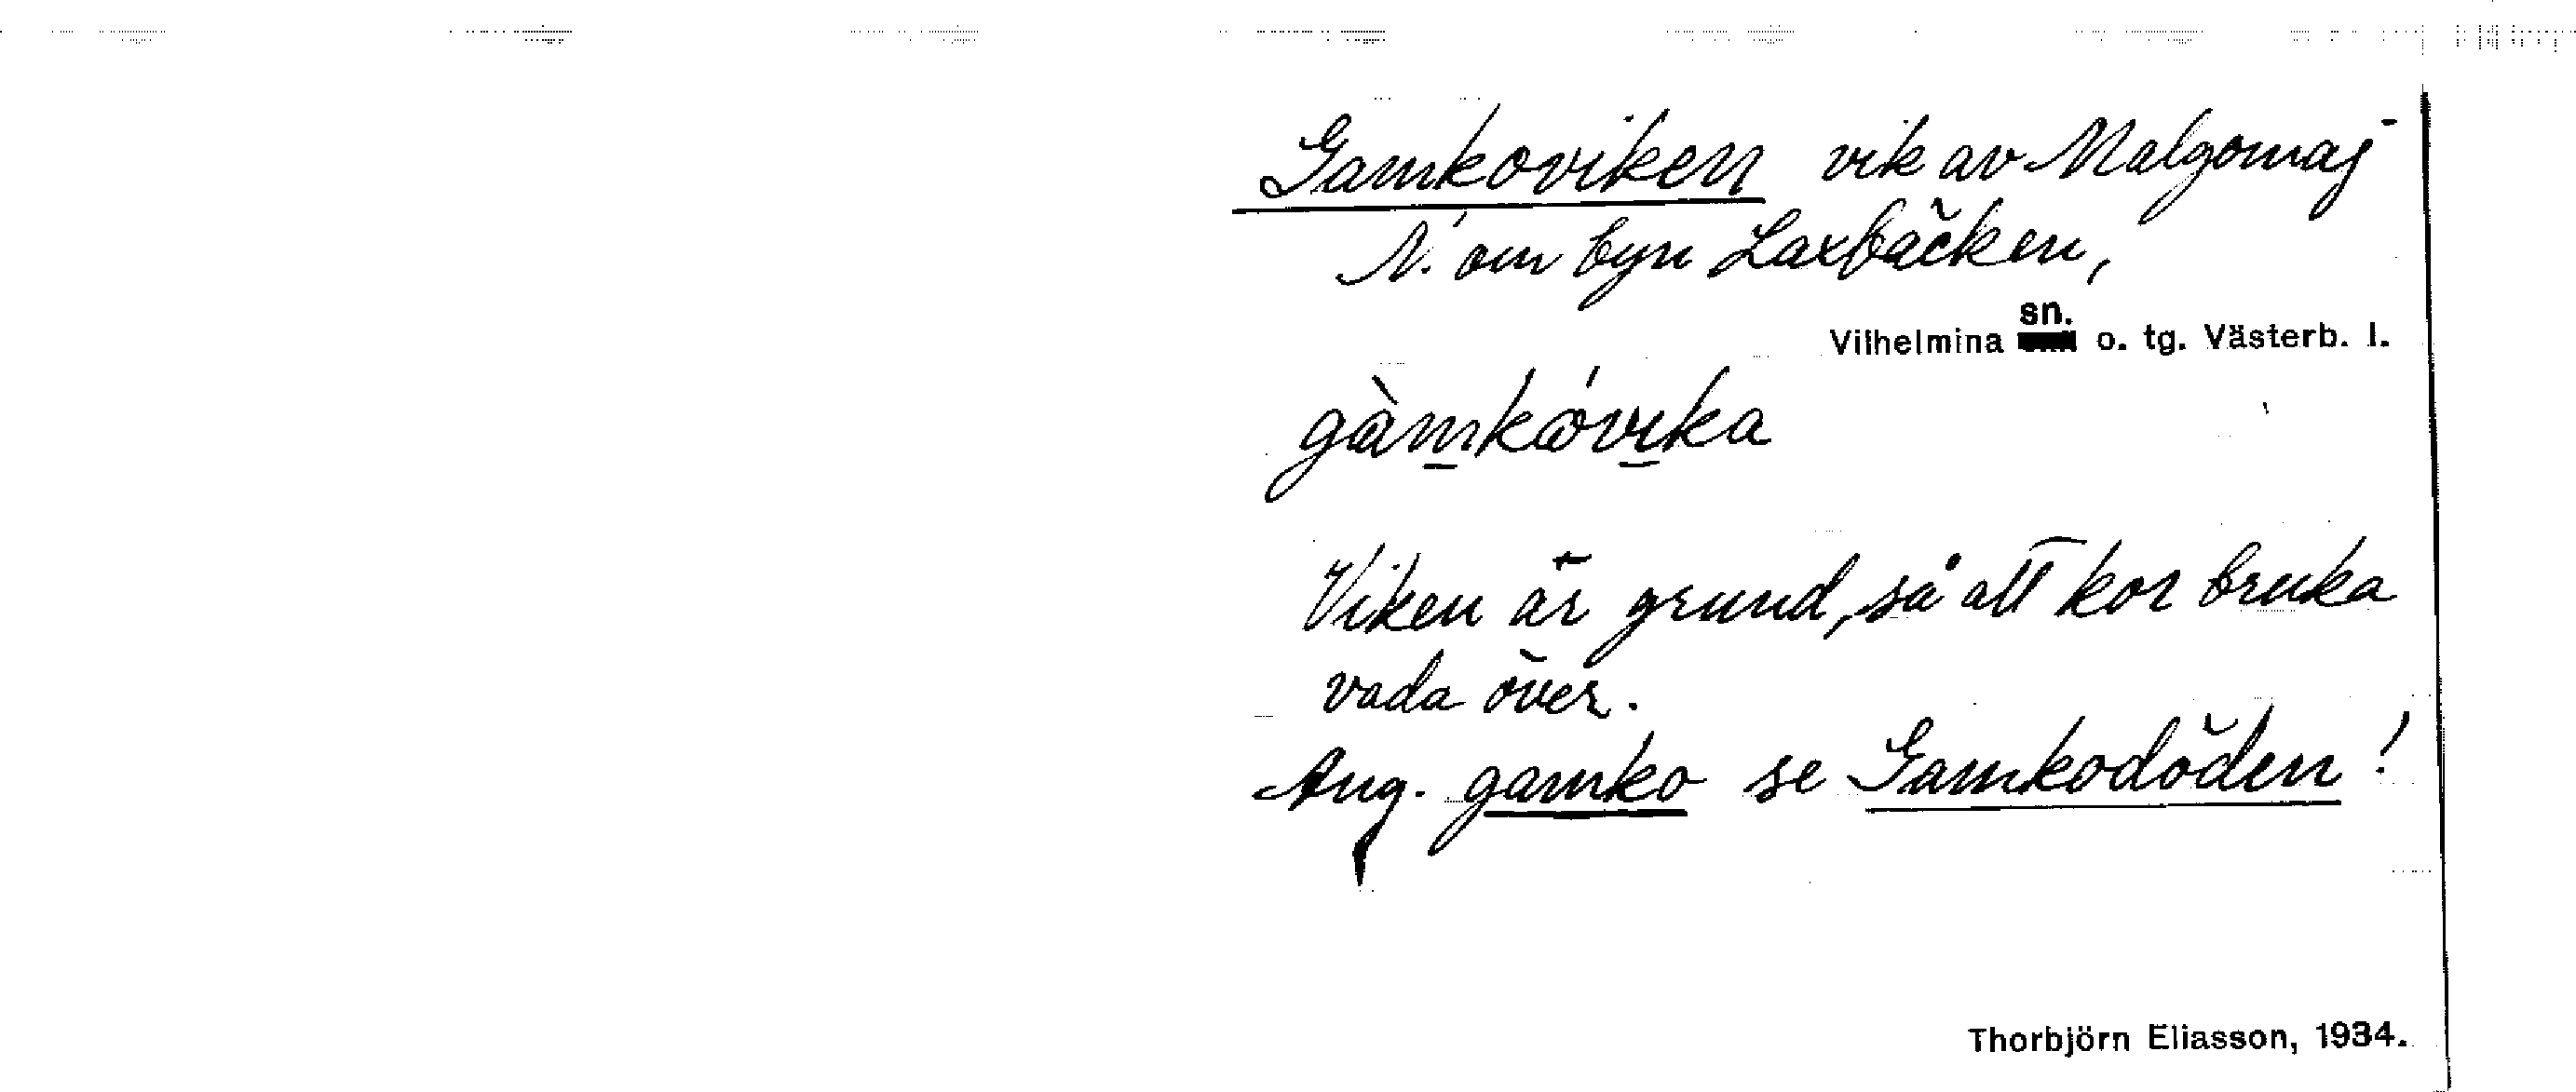 Gamkoviken vik av Malgomaj
N. om byn Laxbäcken,
Vilhelmina sn. o. tg. Västerb. l.
gàmkωvika
Viken är grund, så att kor bruka
vada över.
Ang. gamko se Gamkodöden!
Thorbjörn Eliasson, 1934.